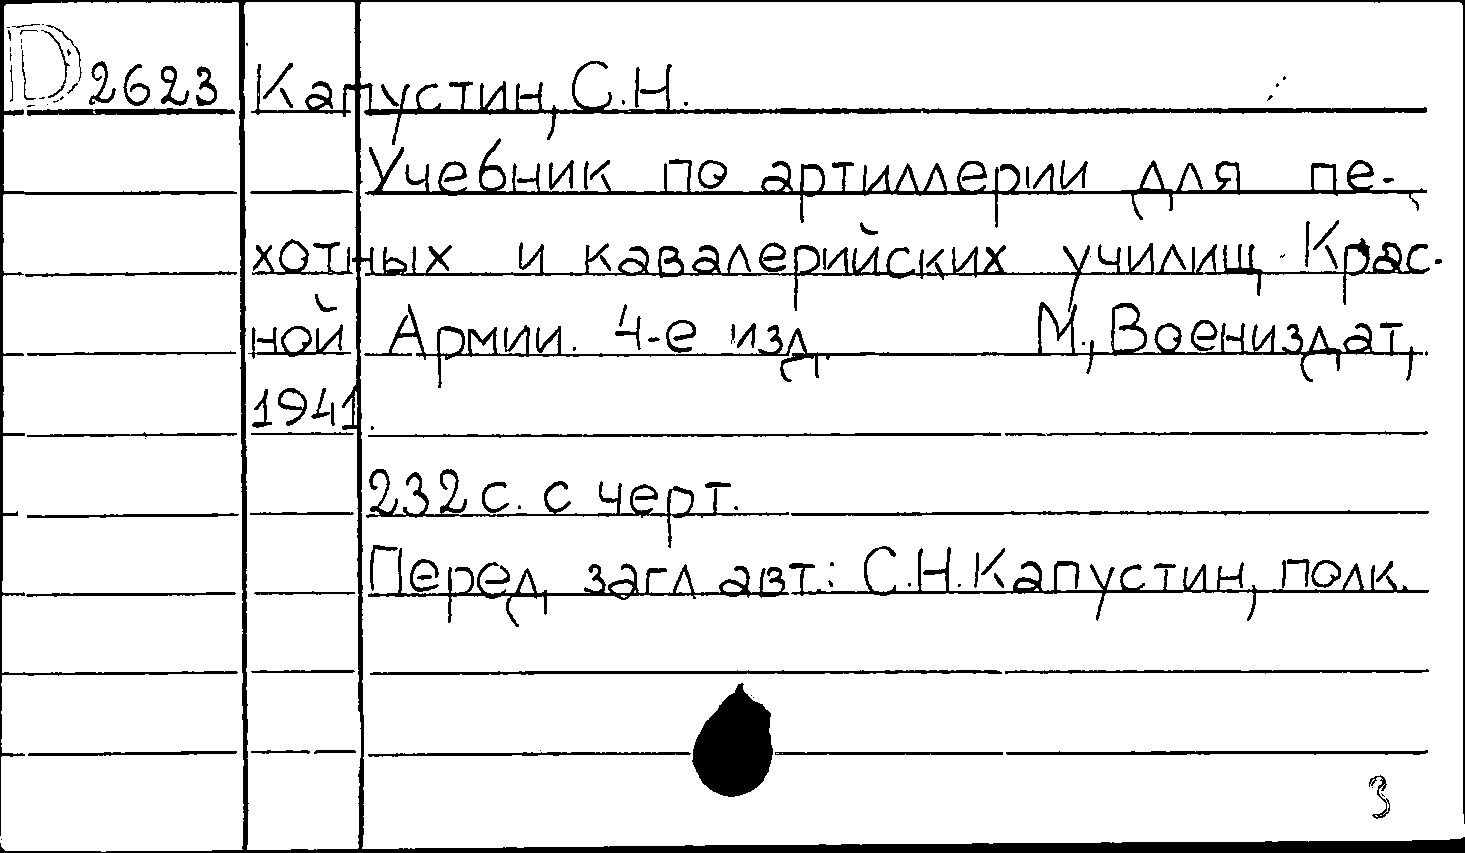 D 2623 Капустин, С.Н.
Учебник по артиллерии для пе-
хотных и кавалерийских училищ Крас-
ной Армии. 4-е изд. М., Воениздат,
1941.
232 с. с черт.
Перед загл авт.: С.Н.Капустин, полк.
3